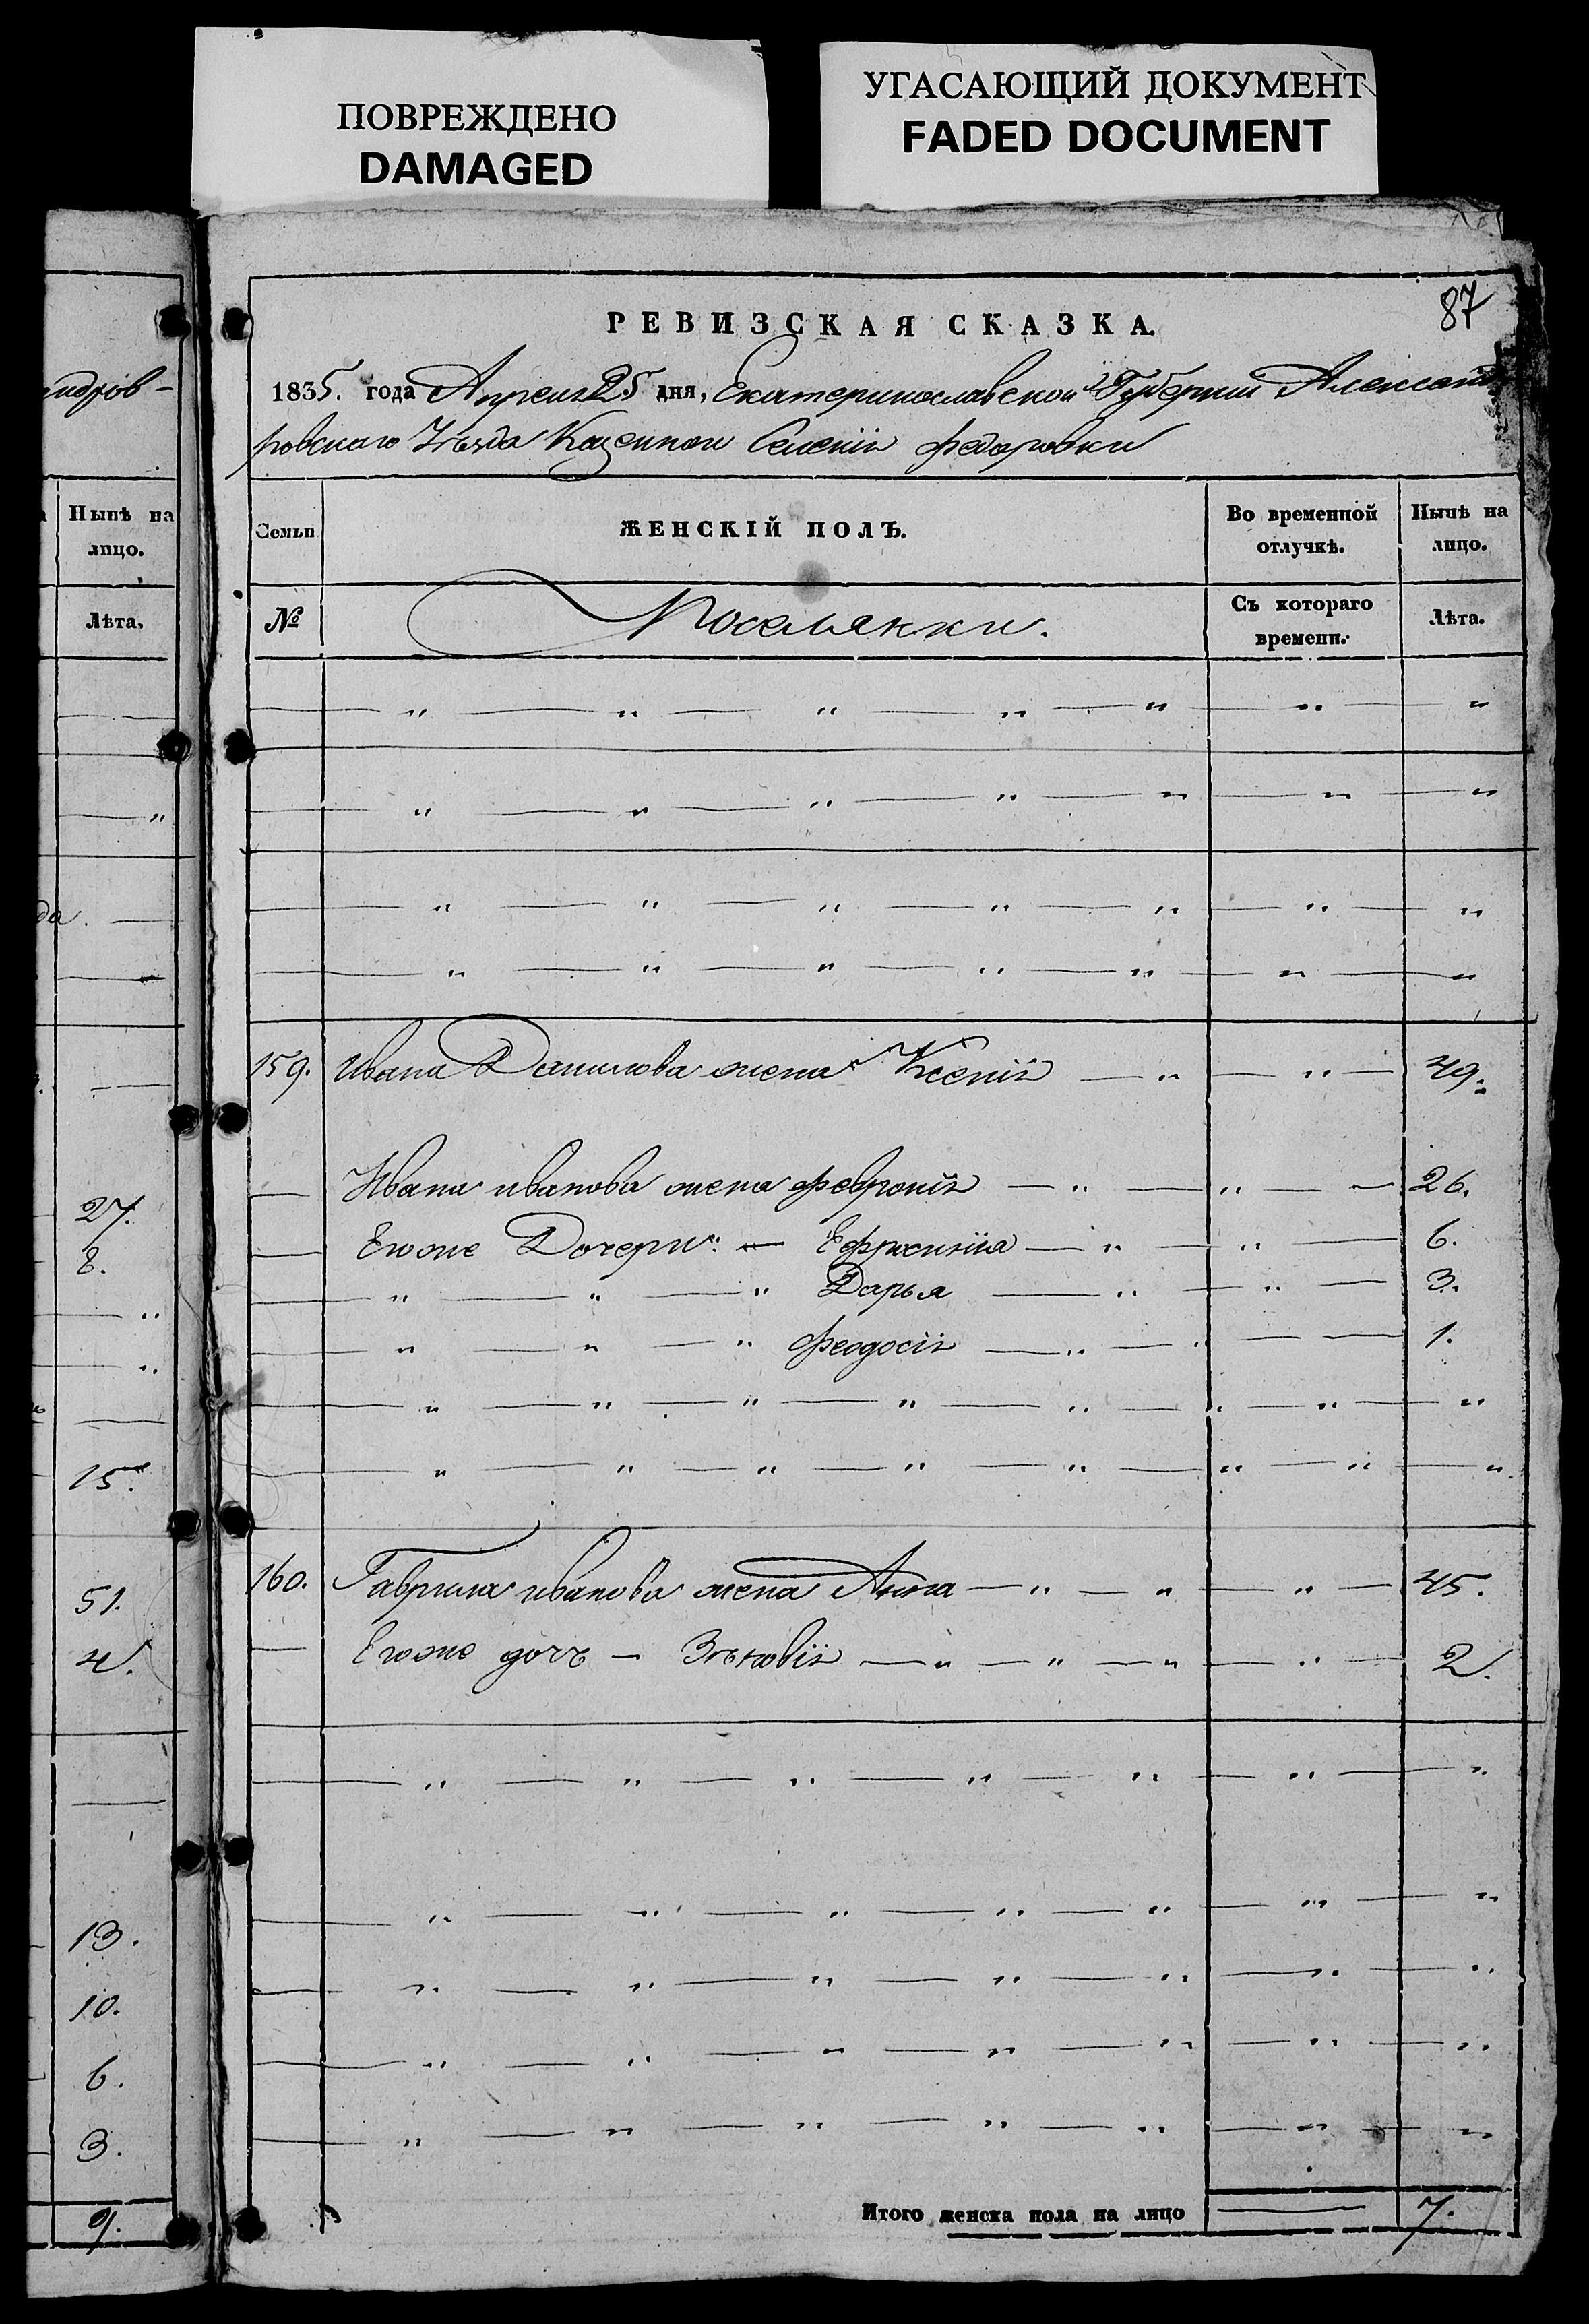 ПОВРЕЖДЕНО
DAMAGED
УГАСАЮЩИЙ ДОКУМЕНТ
FADED DOCUMENT
87
РЕВИЗСКАЯ СКАЗКА.
1835. года Апреля 25 дня, Екатеринославской Губернии Александ
ровского Уезда Казенной Селенія Федоровки
ндров-
Нынѣ на
лицо.
Лѣта.
да.
27.
8.
15.
51.
4.
13.
10.
6.
3.
9.
Семьи
ЖЕНСКІЙ ПОЛЪ.
Во временной
отлучкѣ.
Нынѣ на
лицо.
№
Поселянки.
Съ котораго
времени.
Лѣта.
— „ — „ — „ — „ — „ — „ — „
— „ — „ — „ — „ — „ — „ — „
— „ — „ — „ — „ — „ — „ — „
— „ — „ — „ — „ — „ — „ — „
159. Ивана Данилова жена Ксенія — „ — „ — 49.
— Ивана иванова жена Февронія — „ — „ — 26.
— Егоже Дочери: — Ефросинія — „ — „ — 6.
— „ — „ — „ Дарья — „ — „ — 3.
— „ — „ — „ Феодосія — „ — „ — 1.
— „ — „ — „ — „ — „ — „ — „ — „
— „ — „ — „ — „ — „ — „ — „ — „
160. Гаврила иванова жена Анна — „ — „ — „ — 45.
— Егоже дочь — Зѣновія — „ — „ — „ — „ — 2.
— „ — „ — „ — „ — „ — „ — „
— „ — „ — „ — „ — „ — „ — „
— „ — „ — „ — „ — „ — „ — „
— „ — „ — „ — „ — „ — „ — „
— „ — „ — „ — „ — „ — „ — „
Итого женска пола на лицо — 7.